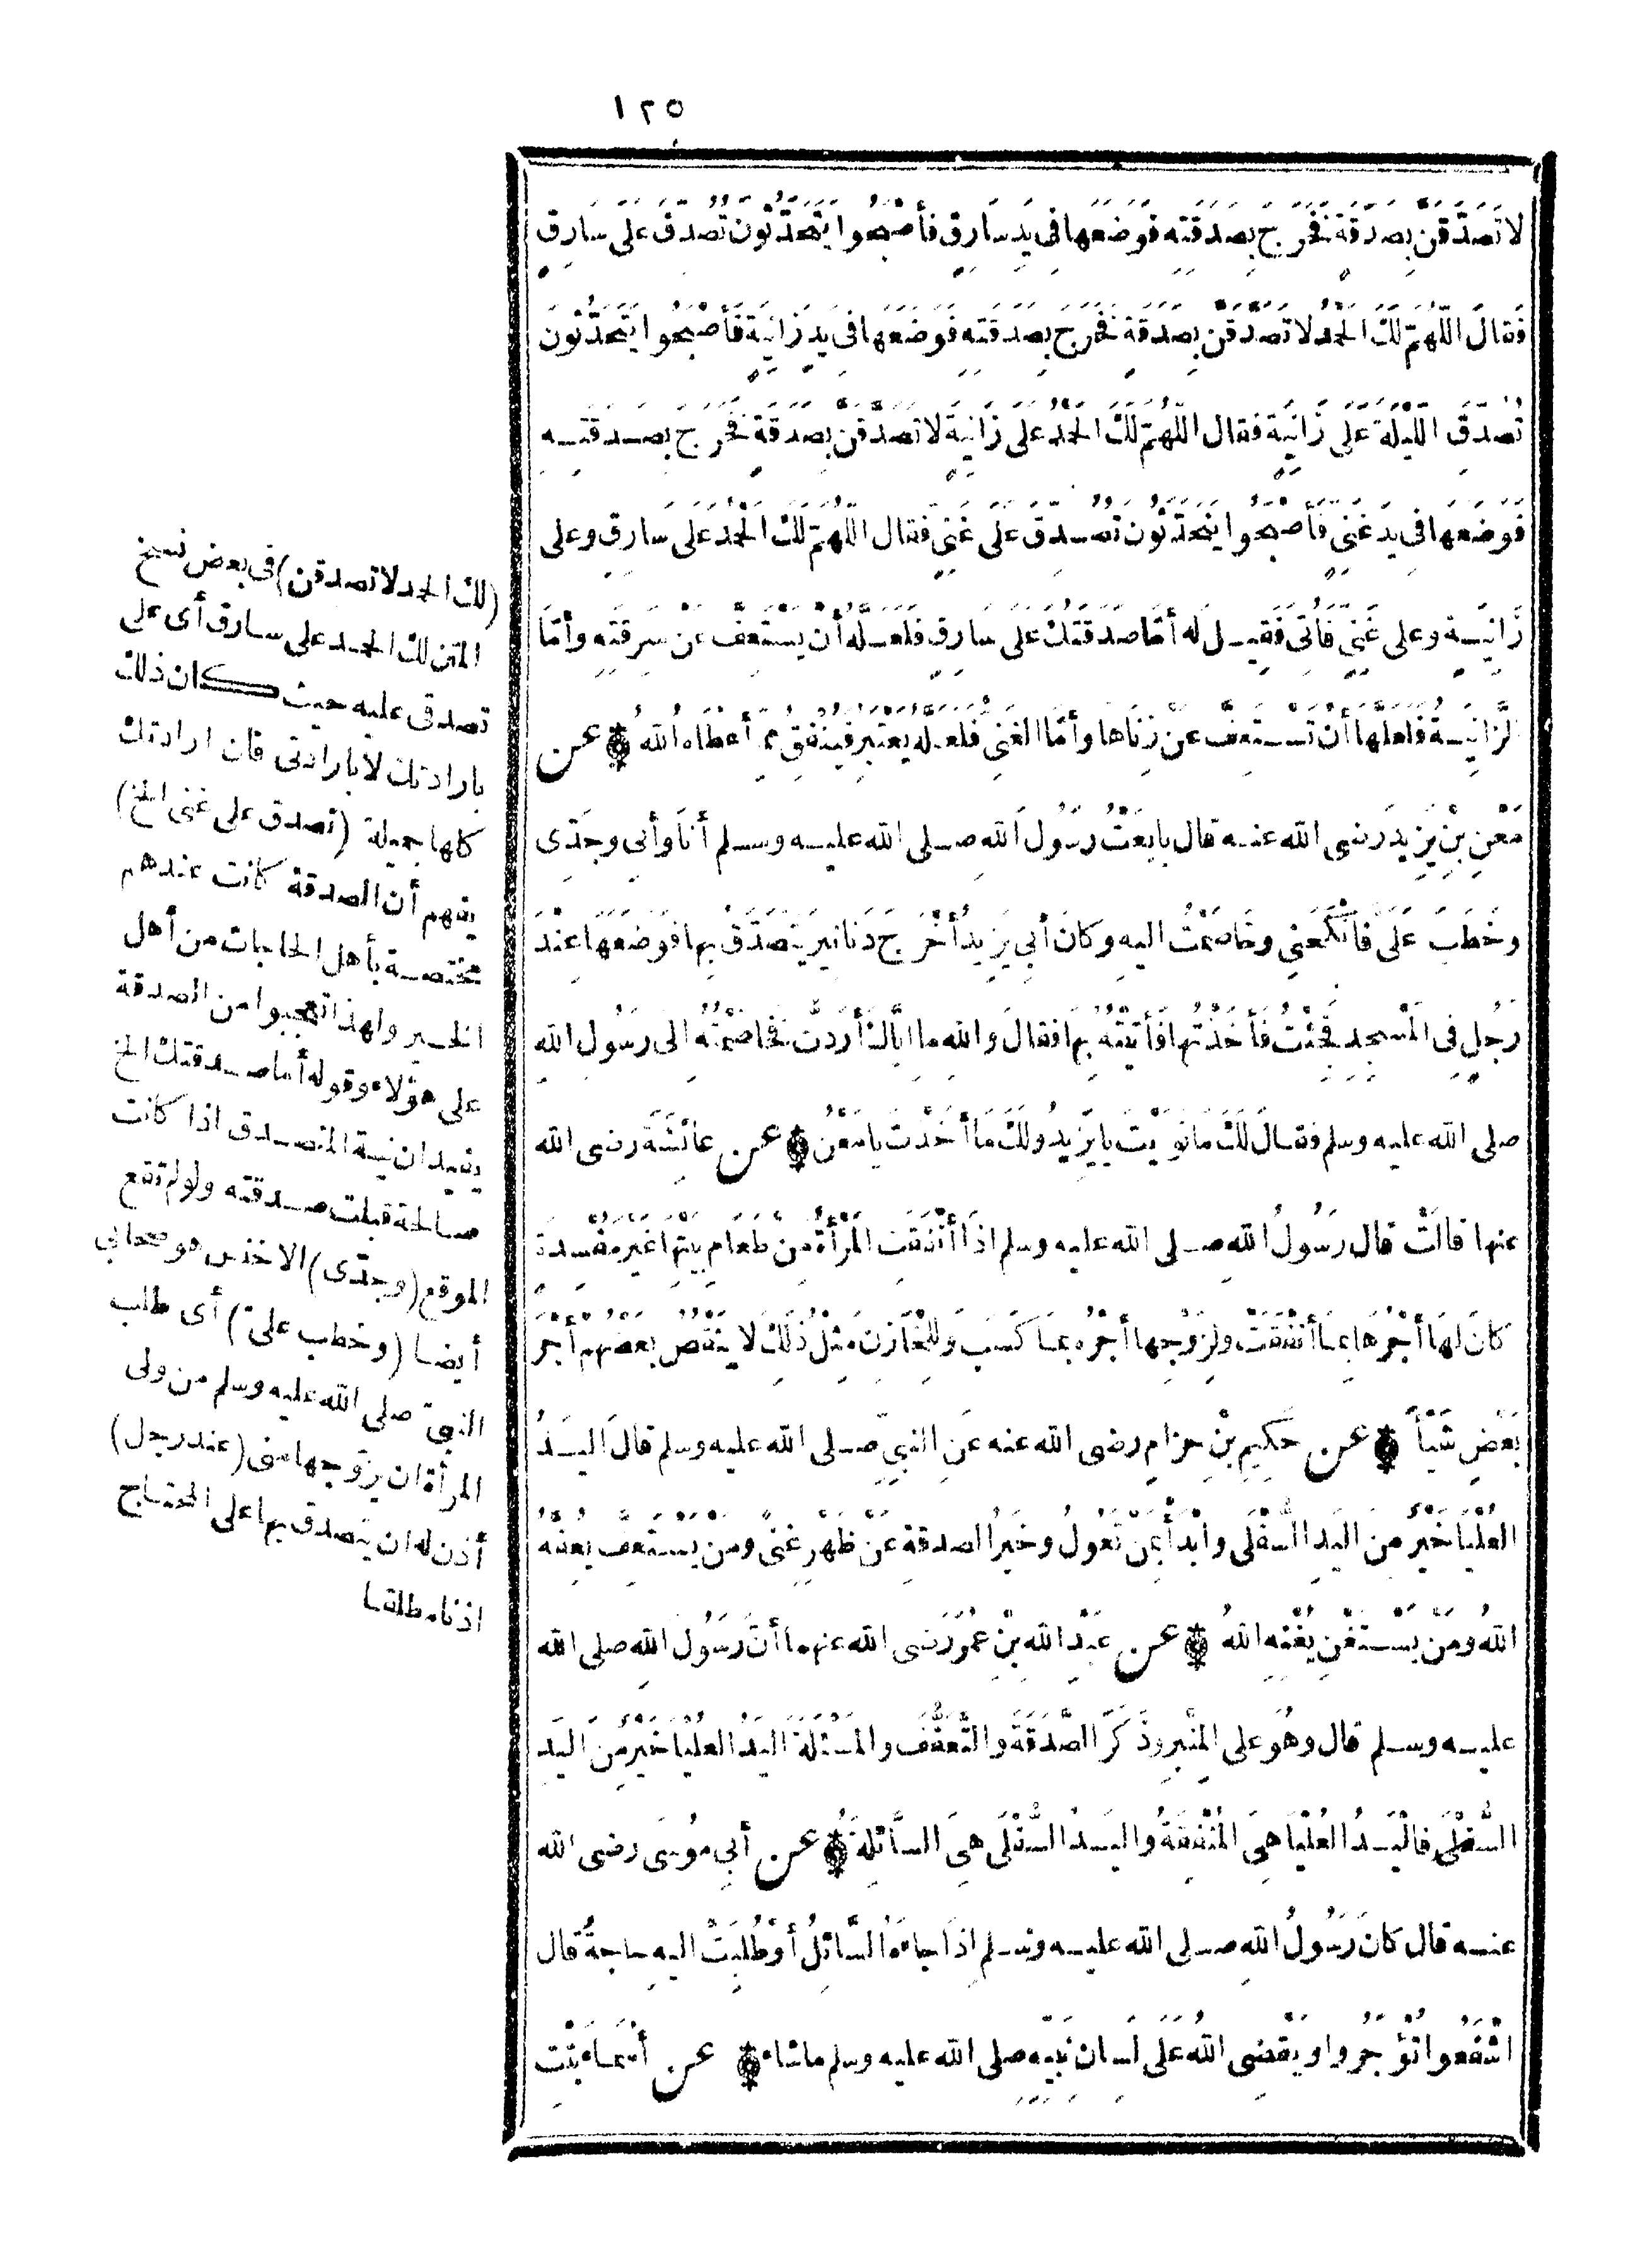 ١٢٥
لَاتَصَدَّقَنَّ بِصَدَقَةٍ فَخَرَجَ بِصَدَقَتِهِ فَوَضَعَهَا فِي يَدِ سَارِقٍ فأَصْبَحُوا يَتَحَدَّثُونَ تُصُدِّقَ عَلَى سَارِقٍ
فَقالَ اللَّهُمَّ لَكَ الحَمْدُ لَاتَصَدَّقَنَّ بِصَدَقَةٍ فَخَرَجَ بِصَدَقَتِهِ فَوَضَعَهَا فِي يَدِ زَانِيَةٍ فَأَصْبَحُوا يَتَحَدَّثُونَ
تُصُدِّقَ اللَّيْلَةَ عَلَى زَانِيَةٍ فقال اللَّهُمَّ لَكَ الحَمْدُ عَلَى زَانِيَةٍ لَاتَصَدَّقَنَّ بِصَدَقَةٍ فَخَرَجَ بِصَدَقَتِهِ
فَوَضَعَهَا فِي يَدِ غَنِيٍّ فَأَصْبَحُوا يَتَحَدَّثُونَ تُصُدِّقَ عَلَى غَنِيٍّ فَقال اللَّهُمَّ لَكَ الْحَمْدُ عَلَى سَارِقٍ وعلى
زَانِيَةٍ وعلى غَنِيٍّ فَأُتِيَ فَقِيلَ لَه أَمَّا صَدَقَتُكَ عَلَى سَارِقٍ فَلَعَلَّهُ أَنْ يَسْتَعِفَّ عَنْ سَرِقَتِهِ وأَمَّا
الزَّانِيَةُ فَلَعَلَّهَا أَنْ تَسْتَعِفَّ عَنْ زِنَاها وأَمَّا الغَنِيُّ فَلَعَلَّهُ يَعْتَبِرُ فَيُنْفِقُ مِمَّا أَعْطَاهُ اللهُ ۞ عن
مَعْنِ بْنِ يَزِيدَ رَضي الله عنه قال بايَعْتُ رسُولَ اللهِ صلى الله عليه وسلم أنَا وأبي وجَدِّي
وخَطَبَ عَلَيَّ فَأَنْكَحَنِي وخَاصَمْتُ اليهِ وكانَ أبي يَزِيدُ أَخْرَجَ دَنانِيرَ يَتَصَدَّقُ بِها فَوَضَعَهَا عِنْدَ
رَجُلٍ فِي المَسْجِدِ فَجِئْتُ فَأَخَذْتُها فَأَتَيْتُهُ بِهَا فقالَ وَاللهِ ما إيَّاكَ أَرَدتُ فَخَاصَمْتُهُ الَى رَسُولِ اللهِ
صلى الله عليه وسلم فقال لَكَ ما نَوَيْتَ يا يَزِيدُ ولَكَ ما أَخَذْتَ يا مَعْنُ ۞ عن عائِشَةَ رضى الله
عنها قالَتْ قال رَسُولُ اللهِ صلى الله عليه وسلم اذَا أَنْفَقَتِ المَرْأَةُ مِنْ طَعَامِ بَيْتِهَا غَيْرَ مُفْسِدَةٍ
كانَ لهَا أَجْرُهَا بِمَا أَنْفَقَتْ ولِزَوْجِها أَجْرُهُ بمَا كَسَبَ وَلِلْخَازِنِ مِثْلُ ذَلِكَ لا يَنْقُصُ بَعْضُهُمْ أَجْرَ
بَعْضٍ شَيْأً ۞ عن حَكِيمِ بْنِ حِزامٍ رضى الله عنه عَنِ النبيِّ صلى الله عليه وسلم قالَ اليَدُ
العُلْيَا خَيْرٌ مِنَ اليَدِ السُّفْلَى وابْدَأْ بِمَنْ تَعُولُ وخَيْرُ الصدقةِ عَنْ ظَهْرِ غِنًى ومَنْ يَسْتَعِفَّ يُعِفَّهُ
اللهُ ومَنْ يَسْتَغْنِ يُغْنِهِ اللهُ ۞ عن عَبْدِ اللهِ بنِ عُمَرَ رَضى الله عنهما أنَّ رَسُولَ اللهِ صلى الله
عليه وسلم قال وهُوَ على المِنْبَرِ وذَكَرَ الصَّدَقَةَ والتَّعَفُّفَ والمَسْئَلَةَ اليَدُ العُلْيَا خَيْرٌ مِنَ اليَدِ
السُّفْلَى فالْيَدُ العُلْيَا هِيَ المُنْفِقَةُ واليَدُ السُّفْلَى هِيَ السَّائِلَةُ ۞ عن أبي مُوسَى رضى الله
عنه قال كانَ رَسُولُ اللهِ صلى الله عليه وسلم اذَا جاءَهُ السَّائِلُ أوْ طُلِبَتْ اليهِ حاجةٌ قال
اشْفَعُوا تُؤْجَرُوا ويَقْضِي اللهُ عَلَى لِسانِ نَبِيِّهِ صلى الله عليه وسلم ماشاء ۞ عن أسْمَاءَ بِنْتِ
(لك الحمد لاتصدقن) في بعض نسخ
المتن لك الحمد على سارق أى على
تصدقى عليه حيث كان ذلك
بارادتك لا بارادتى فان ارادتك
كلها جميلة (تصدق على غنى الخ)
يفهم أن الصدقة كانت عندهم
مختصة بأهل الحاجات من أهل
الخير ولهذا تعجبوا من الصدقة
على هؤلاء وقوله أما صدقتك الخ
يفيد ان نية المتصدق اذا كانت
صالحة قبلت صدقته ولو لم تقع
الموقع (وجدّى) الاخنس هو صحابي
أيضا (وخطب علىّ) أى طلب
النبيّ صلى الله عليه وسلم من ولى
المرأة ان يزوّجها منى (عند رجل)
أذن له ان يتصدق بها على المحتاج
اذنا مطلقا